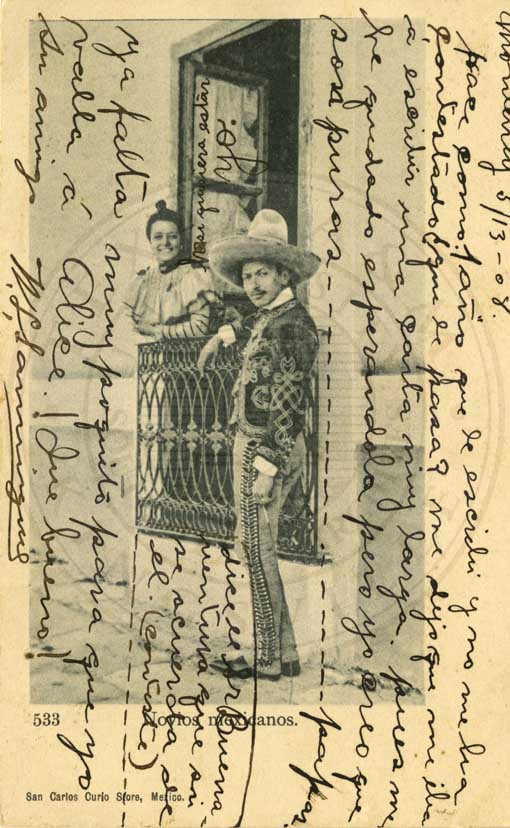 Monterrey 5/13-08.
hace como 1 año que le escribí y no me ha
contestado ¿que le pasa? me dijo que me iba
á escribir una carta muy larga. pues me
he quedado esperandola pero yo creo que
son puras ---- papas
Oh
usted quisiera estar
dice el Sr Buena
ventura que si
se acuerda de
el. (conteste)
ya falta muy poquito para que yo
valla á Alice. ¡Que bueno!
Su amigo
533
Novios mexicanos.
San Carlos Curio Store, Mexico.